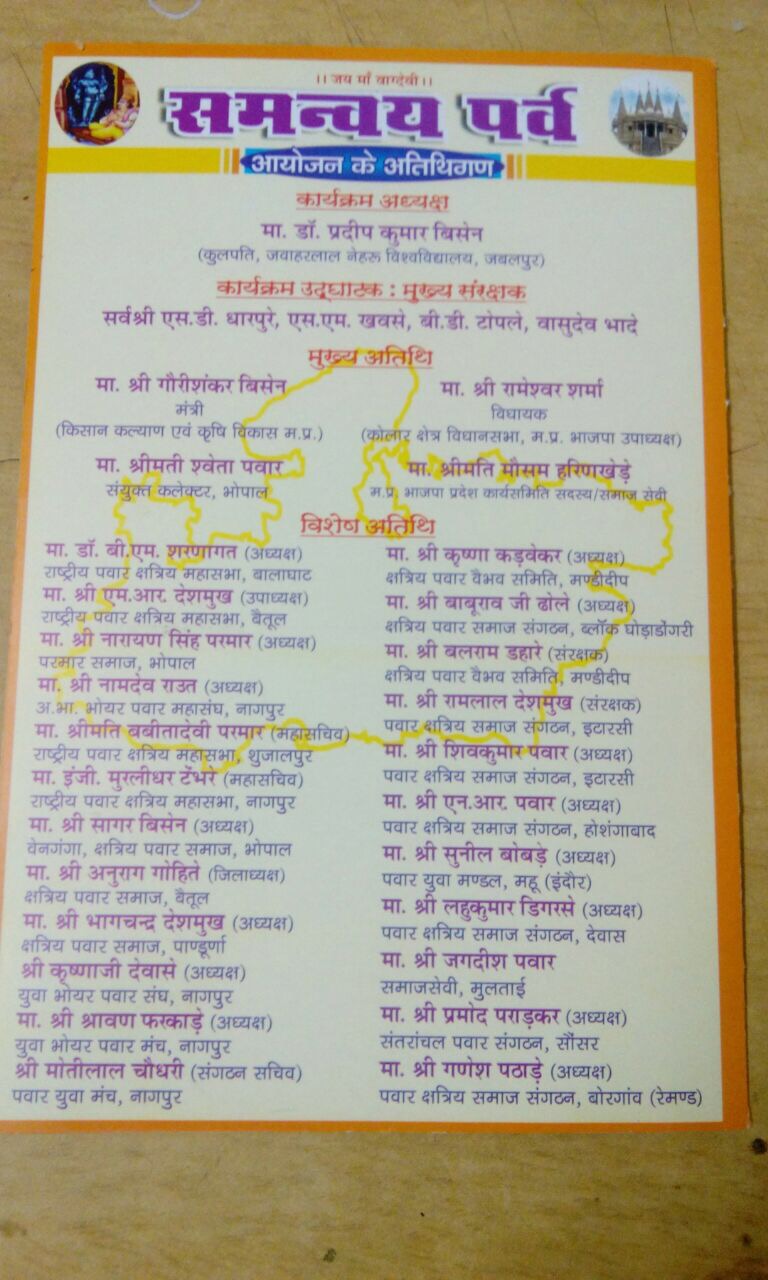 ।। जय माँ वाग्देवी ।।
समन्वय पर्व
आयोजन के अतिथिगण
कार्यक्रम अध्यक्ष
मा. डॉ. प्रदीप कुमार बिसेन
(कुलपति, जवाहरलाल नेहरू विश्वविद्यालय, जबलपुर)
कार्यक्रम उद्घाटक : मुख्य संरक्षक
सर्वश्री एस.डी. धारपुरे, एस.एम. खवसे, बी.डी. टोपले, वासुदेव भादे
मुख्य अतिथि
मा. श्री गौरीशंकर बिसेन
मंत्री
(किसान कल्याण एवं कृषि विकास म.प्र.)
मा. श्री रामेश्वर शर्मा
विधायक
(कोलार क्षेत्र विधानसभा, म.प्र. भाजपा उपाध्यक्ष)
मा. श्रीमती श्वेता पवार
संयुक्त कलेक्टर, भोपाल
मा. श्रीमति मौसम हरिणखेड़े
म.प्र. भाजपा प्रदेश कार्यसमिति सदस्य/समाज सेवी
विशेष अतिथि
मा. डॉ. बी.एम. शरणागत (अध्यक्ष)
राष्ट्रीय पवार क्षत्रिय महासभा, बालाघाट
मा. श्री एम.आर. देशमुख (उपाध्यक्ष)
राष्ट्रीय पवार क्षत्रिय महासभा, बैतूल
मा. श्री नारायण सिंह परमार (अध्यक्ष)
परमार समाज, भोपाल
मा. श्री नामदेव राउत (अध्यक्ष)
अ.भा. भोयर पवार महासंघ, नागपुर
मा. श्रीमति बबीतादेवी परमार (महासचिव)
राष्ट्रीय पवार क्षत्रिय महासभा, शुजालपुर
मा. इंजी. मुरलीधर टेंभरे (महासचिव)
राष्ट्रीय पवार क्षत्रिय महासभा, नागपुर
मा. श्री सागर बिसेन (अध्यक्ष)
वेनगंगा, क्षत्रिय पवार समाज, भोपाल
मा. श्री अनुराग गोहिते (जिलाध्यक्ष)
क्षत्रिय पवार समाज, बैतूल
मा. श्री भागचन्द्र देशमुख (अध्यक्ष)
क्षत्रिय पवार समाज, पाण्डूर्णा
श्री कृष्णाजी देवासे (अध्यक्ष)
युवा भोयर पवार संघ, नागपुर
मा. श्री श्रावण फरकाड़े (अध्यक्ष)
युवा भोयर पवार मंच, नागपुर
श्री मोतीलाल चौधरी (संगठन सचिव)
पवार युवा मंच, नागपुर
मा. श्री कृष्णा कड़वेकर (अध्यक्ष)
क्षत्रिय पवार वैभव समिति, मण्डीदीप
मा. श्री बाबूराव जी ढोले (अध्यक्ष)
क्षत्रिय पवार समाज संगठन, ब्लॉक घोड़ाडोंगरी
मा. श्री बलराम डहारे (संरक्षक)
क्षत्रिय पवार वैभव समिति, मण्डीदीप
मा. श्री रामलाल देशमुख (संरक्षक)
पवार क्षत्रिय समाज संगठन, इटारसी
मा. श्री शिवकुमार पवार (अध्यक्ष)
पवार क्षत्रिय समाज संगठन, इटारसी
मा. श्री एन.आर. पवार (अध्यक्ष)
पवार क्षत्रिय समाज संगठन, होशंगाबाद
मा. श्री सुनील बोबड़े (अध्यक्ष)
पवार युवा मण्डल, महू (इंदौर)
मा. श्री लहुकुमार डिगरसे (अध्यक्ष)
पवार क्षत्रिय समाज संगठन, देवास
मा. श्री जगदीश पवार
समाजसेवी, मुलताई
मा. श्री प्रमोद पराड़कर (अध्यक्ष)
संतरांचल पवार संगठन, सौंसर
मा. श्री गणेश पठाड़े (अध्यक्ष)
पवार क्षत्रिय समाज संगठन, बोरगांव (रेमण्ड)